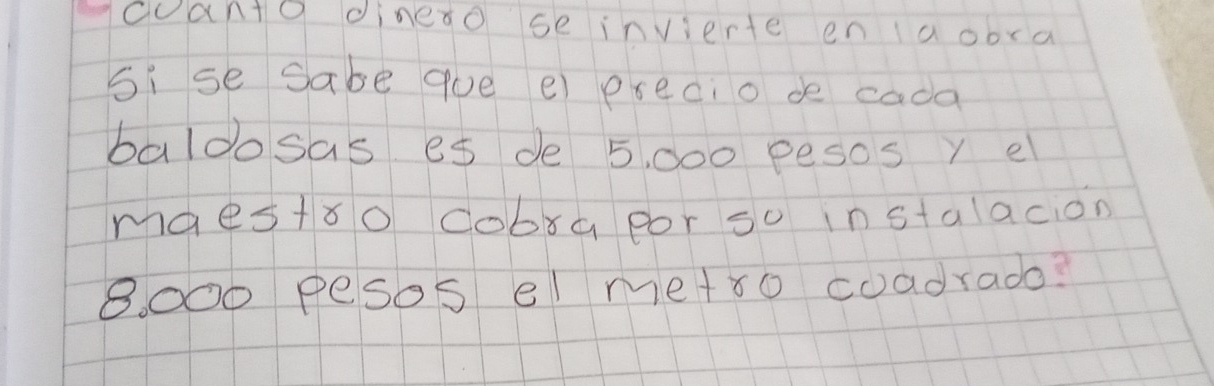 cuanto dinero se invierte en la obra
si se sabe que el precio de cada
baldosas es de 5.000 pesos y el
maestro cobra por su instalación
8.000 pesos el metro cuadrado?